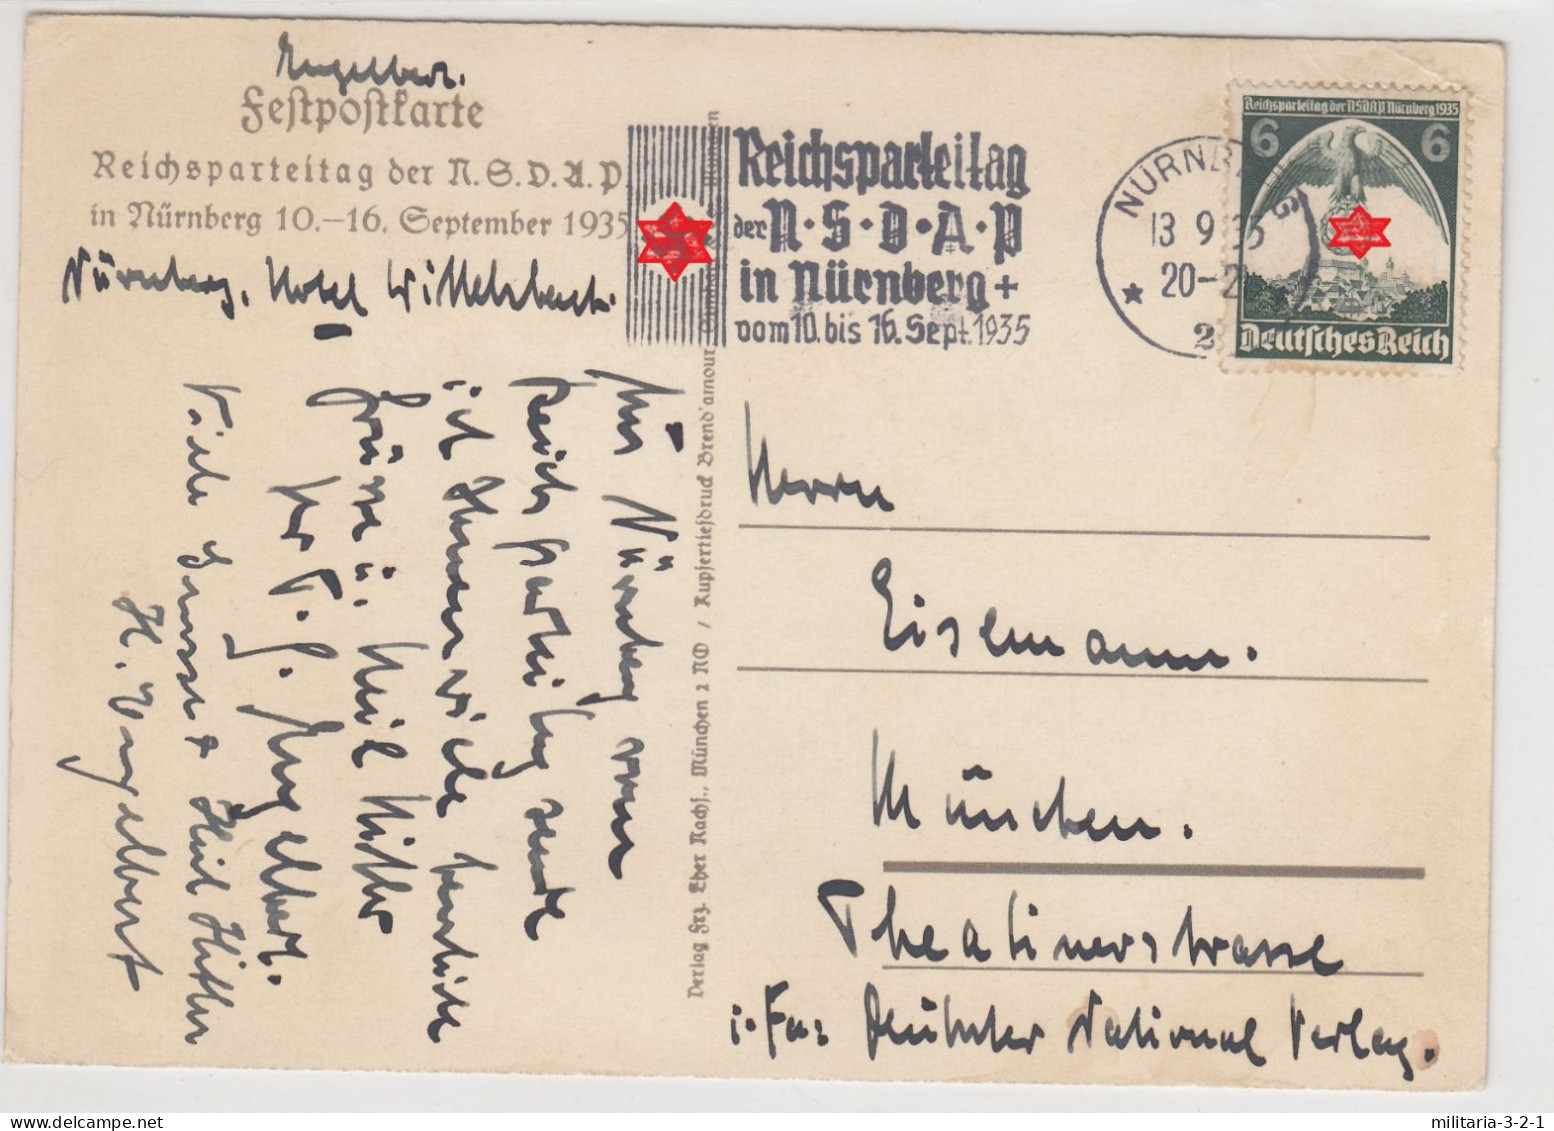 Engelbert.
Festpostkarte
Reichsparteitag der N.S.D.A.P.
in Nürnberg 10.–16. September 1935
Nürnberg, Hotel Wittelsbach.
Reichsparteitag
der N·S·D·A·P
in Nürnberg +
vom 10. bis 16. Sept. 1935
NÜRNBERG
13 9 35
20-2
2
Reichsparteitag der NSDAP Nürnberg 1935
6 6
Deutsches Reich
Aus Nürnberg vom
Reichsparteitag sende
ich Ihnen viele herzliche
Grüsse u. Heil Hitler
Ihr P. G. Engelbert.
Viele Grüsse + Heil Hitler
H. Engelbert
Verlag Frz. Eher Nachf., München 2 NO / Kupfertiefdruck Brend'amour
München
Herrn
Eisemann.
München.
Theatinerstrasse
i. Fa: Deutscher National Verlag.
militaria-3-2-1